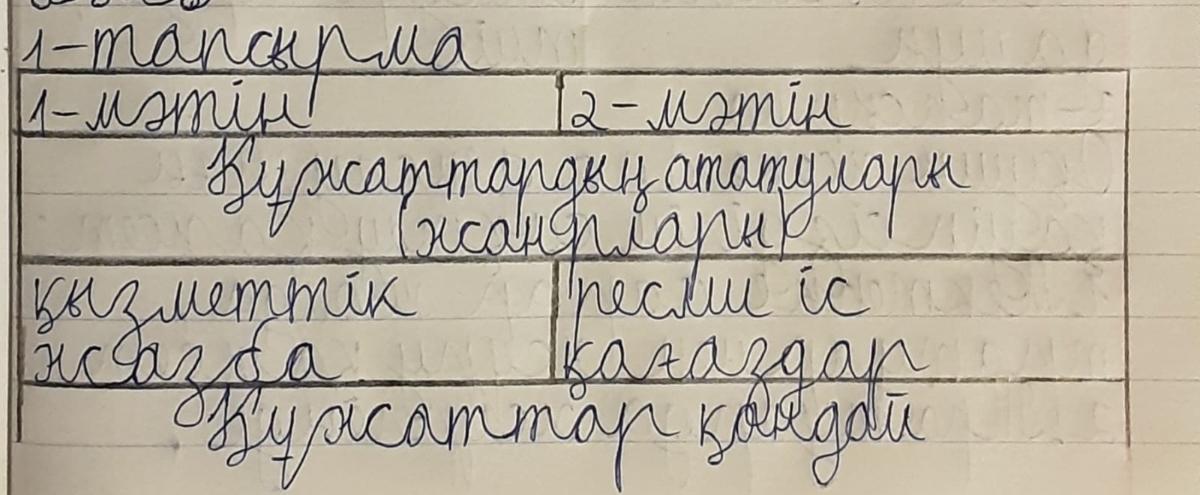 1-тапсырма
1-мәтін 2-мәтін
Құжаттардың ататулары
(жанрлары)
қызметтік ресми іс
жазба қағаздар
Құжаттар қандай